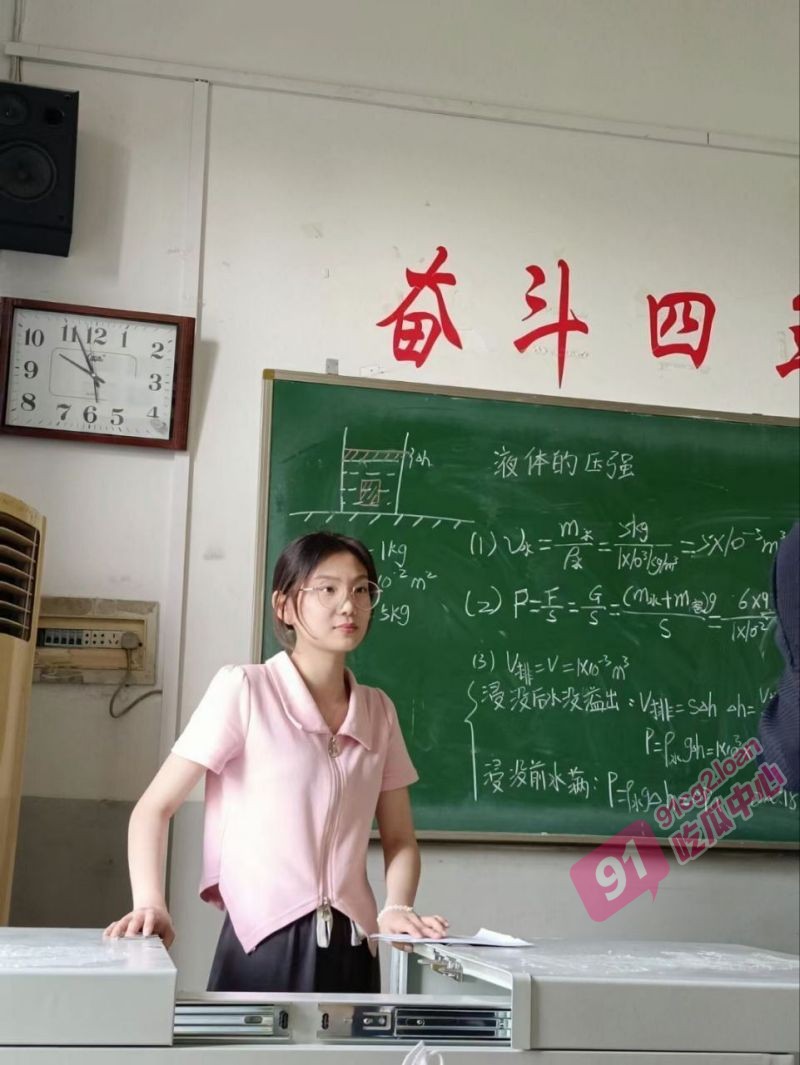 奋斗四
10 11 12 1 2 3 4 5 6 7 8 9
液体的压强
Δh
1kg
10⁻² m²
5kg
(1) V水 = m水/ρ水 = 5kg/1×10³kg/m³ = 5×10⁻³ m³
(2) P = F/S = G/S = (m水+m容)g/S = 6×9/1×10⁻²
(3) V排 = V = 1×10⁻³ m³
浸没后水没溢出：V排 = SΔh Δh = V
P = ρ水gΔh = 1×10³
浸没前水满：P = ρ水gΔh
91
91cg2.loan
吃瓜中心